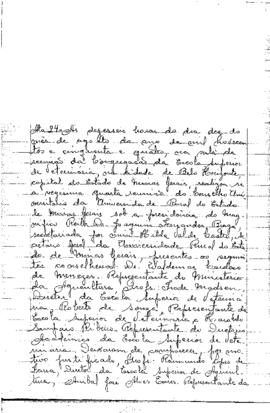 Às dezesseis horas do dia dez do
mês de agosto do ano de mil novecen
tos e cinquenta e quatro, na sala de
reunião da Congregação da Escola Superior
de Veterinária, na cidade de Belo Horizonte,
capital do Estado de Minas Gerais, realizou-se
a vigésima quarta reunião do Conselho Uni
versitário da Universidade Rural do Estado
de Minas Gerais sob a presidência do Mag
nífico Reitor Dr. Joaquim Fernandes Braga,
secretariada por mim,
cretário Geral da Universidade Rural do Esta
do de Minas Gerais, presentes os seguin
tes conselheiros: Dr. Valdemar Cardoso
de Menezes, Representante do Ministério
da Agricultura, Profs. Madsen,
Diretor da Escola Superior de Veteriná
ria, Roberto de Souza, Representante da
Escola Superior de Veterinária e
Sampaio Ribeiro, Representante do Diretório
Acadêmico da Escola Superior de Vete
rinária. Deixaram de comparecer, por mo
tivo justificado, Profs. Raimundo Lopes de
Faria, Diretor da Escola Superior de Agricul
tura, José Alves Torres, Representante da